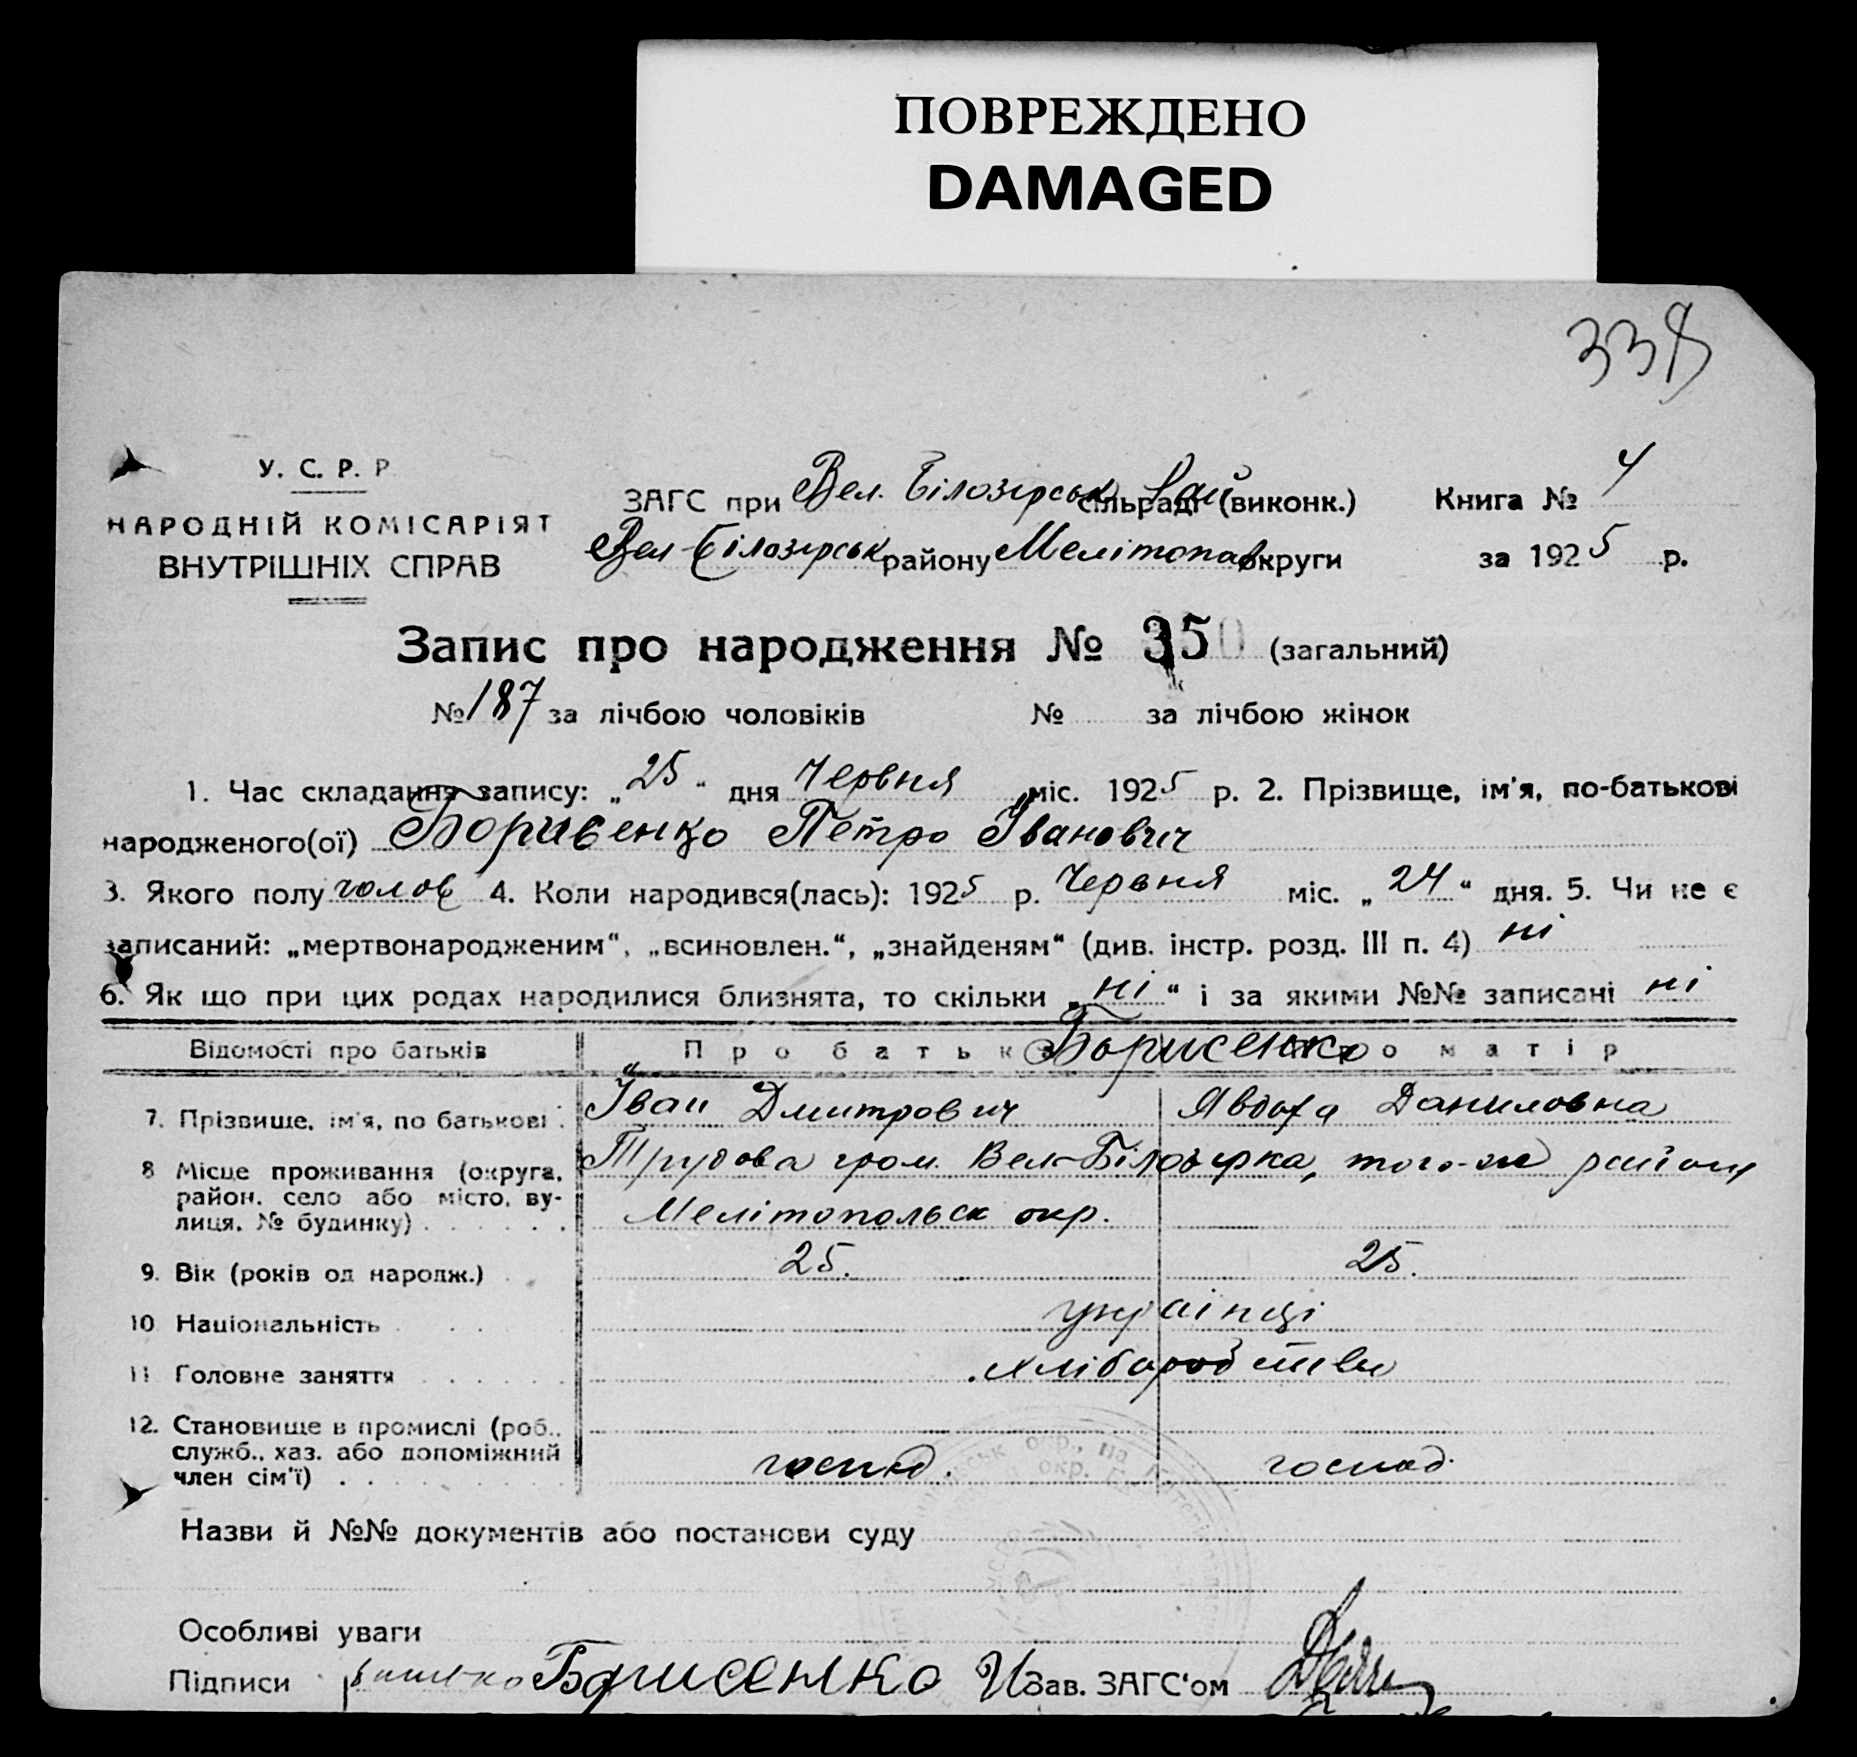 ПОВРЕЖДЕНО
DAMAGED
338
У. С. Р. Р
НАРОДНІЙ КОМІСАРІЯТ
ВНУТРІШНІХ СПРАВ
ЗАГС при Вел. Білозірськ Рай сільраді (виконк.) Книга № 4
Вел-Білозірськ району Мелітопав округи за 1925 р.
Запис про народження № 350 (загальний)
№ 187 за лічбою чоловіків № за лічбою жінок
1. Час складання запису: „25“ дня Червня міс. 1925 р. 2. Прізвище, ім'я, по-батькові
народженого(ої) Борисенко Петро Іванович
3. Якого полу чолов 4. Коли народився(лась): 1925 р. Червня міс. „24“ дня. 5. Чи не є
записаний: „мертвонародженим“, „всиновлен.“, „знайденям“ (див. інстр. розд. III п. 4) ні
6. Як що при цих родах народилися близнята, то скільки „ні“ і за якими №№ записані ні
Відомості про батьків Про батька Борисенко Про матір
7. Прізвище, ім'я, по батькові Іван Дмитрович Явдоха Даниловна
8 Місце проживання (округа, Трудова гром. Вел-Білозірка, того-же району
район, село або місто, ву-
лиця, № будинку) Мелітопольск окр.
9. Вік (років од народж.) 25. 25.
10 Національність українці
11 Головне заняття хліборобство
12. Становище в промислі (роб.,
служб., хаз. або допоміжний господ. господ.
член сім'ї)
Назви й №№ документів або постанови суду
Особливі уваги
Підписи Борисенко И Зав. ЗАГС'ом